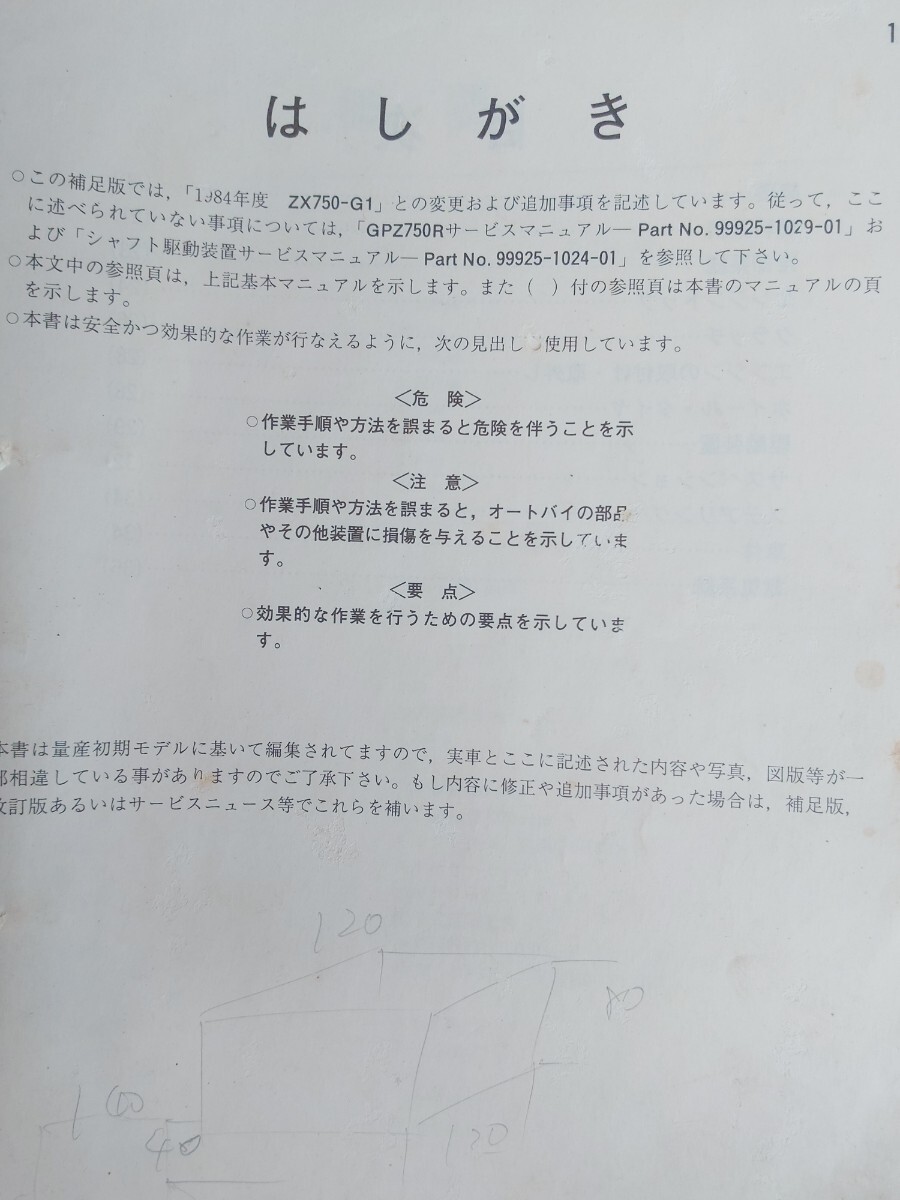 1
はしがき
○この補足版では,「1984年度　ZX750-G1」との変更および追加事項を記述しています。従って,ここ
に述べられていない事項については,「GPZ750Rサービスマニュアル― Part No. 99925-1029-01」お
よび「シャフト駆動装置サービスマニュアル― Part No. 99925-1024-01」を参照して下さい。
○本文中の参照頁は,上記基本マニュアルを示します。また(　)付の参照頁は本書のマニュアルの頁
を示します。
○本書は安全かつ効果的な作業が行なえるように,次の見出し 使用しています。
<危　険>
○作業手順や方法を誤まると危険を伴うことを示
しています。
<注　意>
○作業手順や方法を誤まると,オートバイの部品
やその他装置に損傷を与えることを示していま
す。
<要　点>
○効果的な作業を行うための要点を示していま
す。
本書は量産初期モデルに基いて編集されてますので,実車とここに記述された内容や写真,図版等が一
部相違している事がありますのでご了承下さい。もし内容に修正や追加事項があった場合は,補足版,
改訂版あるいはサービスニュース等でこれらを補います。
120
80
40
120